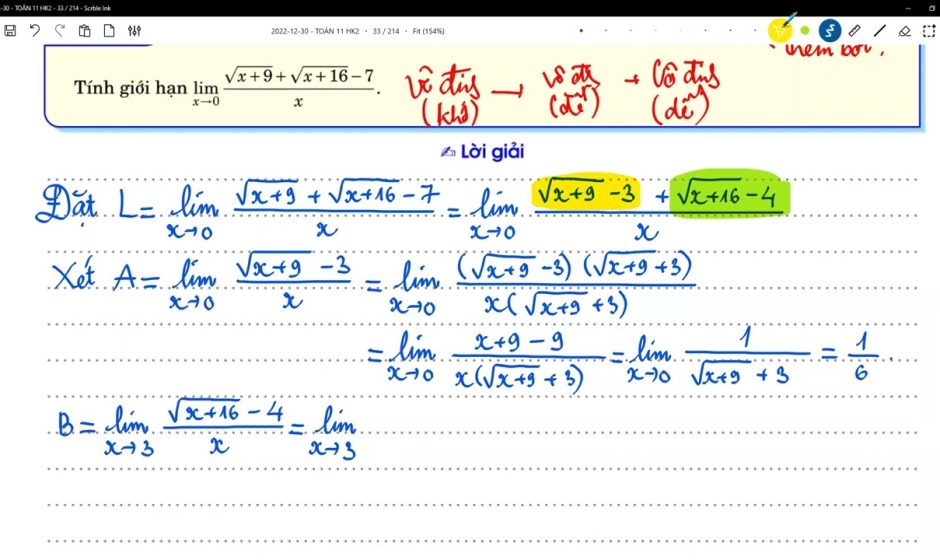 -30 - TOÁN 11 HK2 - 33 / 214 - Scrble Ink
2022-12-30 - TOÁN 11 HK2 • 33 / 214 • Fit (154%)
thêm bớt.
Tính giới hạn lim_{x→0} (√(x+9) + √(x+16) − 7)/x.
Vô định → vô đị → Vô định
(khó) (dễ) (dễ)
Lời giải
Đặt L = lim_{x→0} (√(x+9) + √(x+16) − 7)/x = lim_{x→0} (√(x+9) − 3 + √(x+16) − 4)/x
Xét A = lim_{x→0} (√(x+9) − 3)/x = lim_{x→0} ((√(x+9) − 3)(√(x+9) + 3))/(x(√(x+9) + 3))
= lim_{x→0} (x+9 − 9)/(x(√(x+9) + 3)) = lim_{x→0} 1/(√(x+9) + 3) = 1/6.
B = lim_{x→3} (√(x+16) − 4)/x = lim_{x→3}